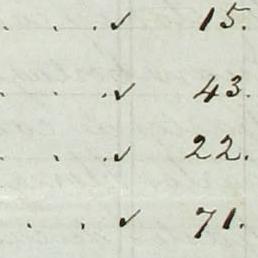 . . . ✓ 15.
. . . ✓ 43.
. . . ✓ 22.
. . ✓ 71.